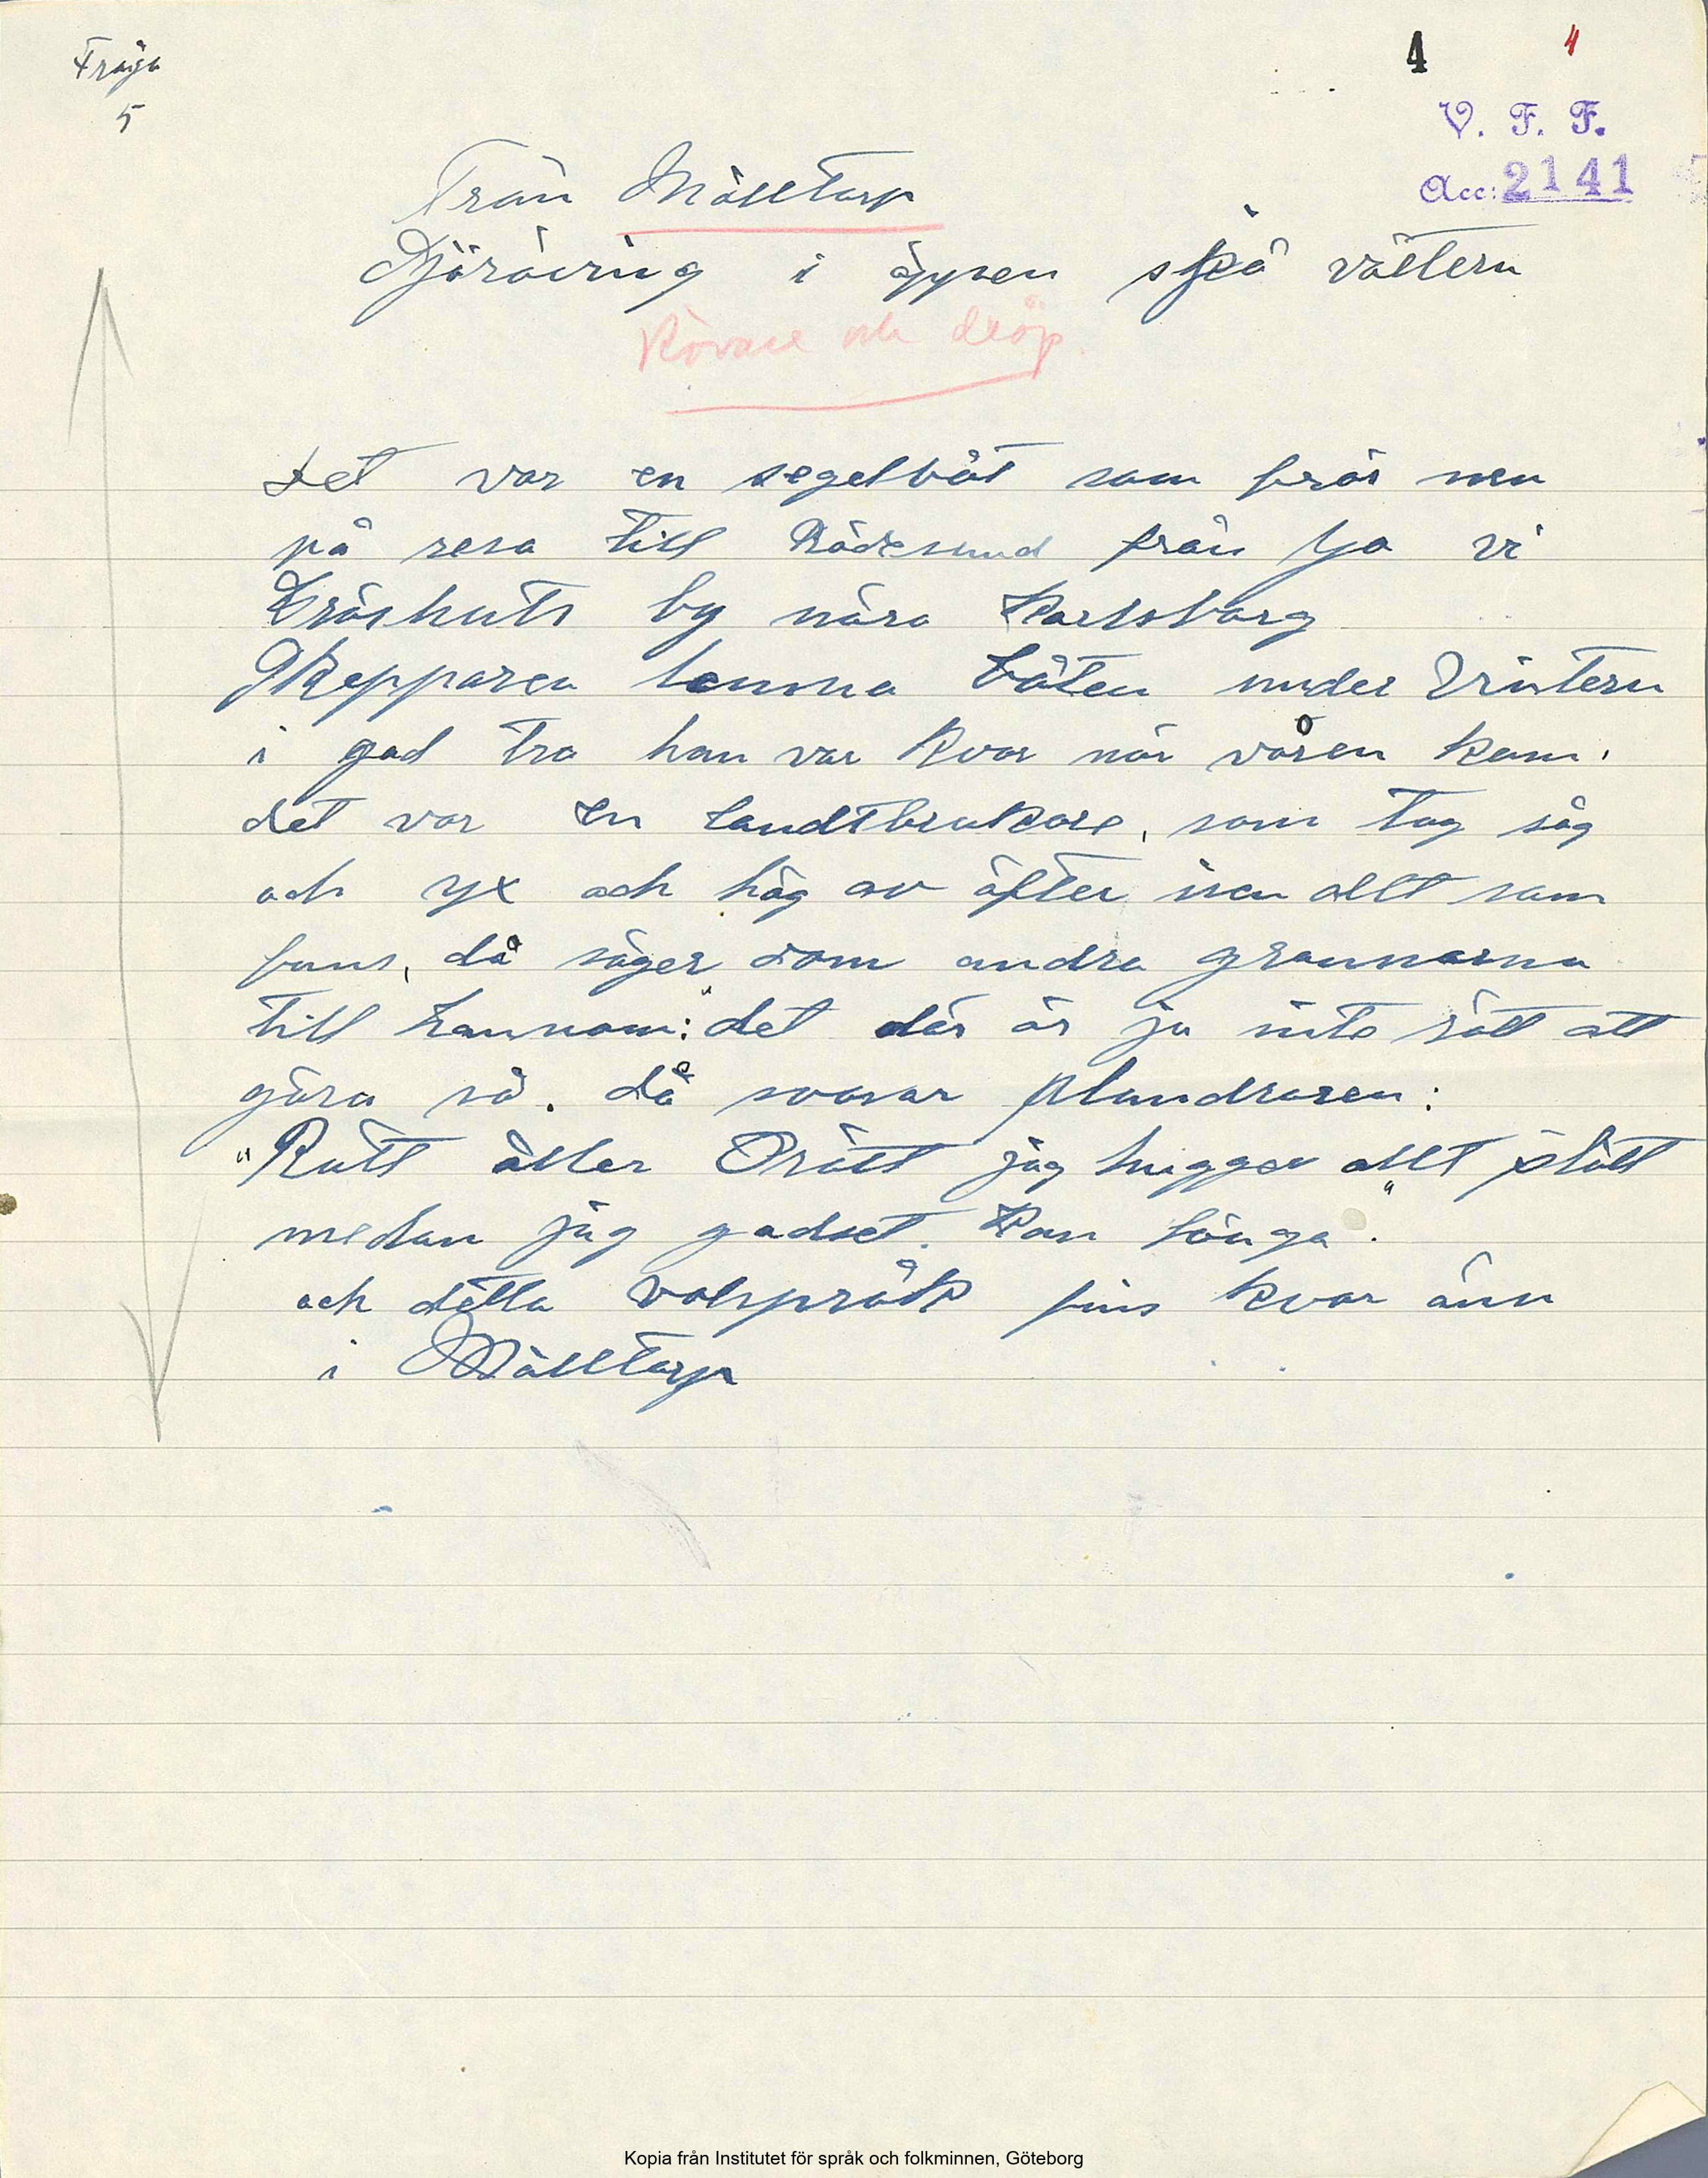 Fråga
5
4 4
V. F. F.
Acc: 2141
Från Mölltorp
Sjöröveriug i öppen sjö vättern
Rövare och dråp.
det var en segelbåt som frös nen
på resa till Rödesund från
by nära Karlsborg
Skepparen lemna båten under Vintern
i god tro han var kvar när våren kom.
det var en Landtbrukare, som tog såg
och yx och hög av äfter isen allt som
fans, då säger dom andra grannarna
till hannom: "det där är ju inte rätt att
göra så. då svarar plundraren:
"Rätt äller Orätt jag hugger allt slätt
medan jag godset kan fånga".
och detta valspråk fins kvar änn
i Mölltorp
Kopia från Institutet för språk och folkminnen, Göteborg